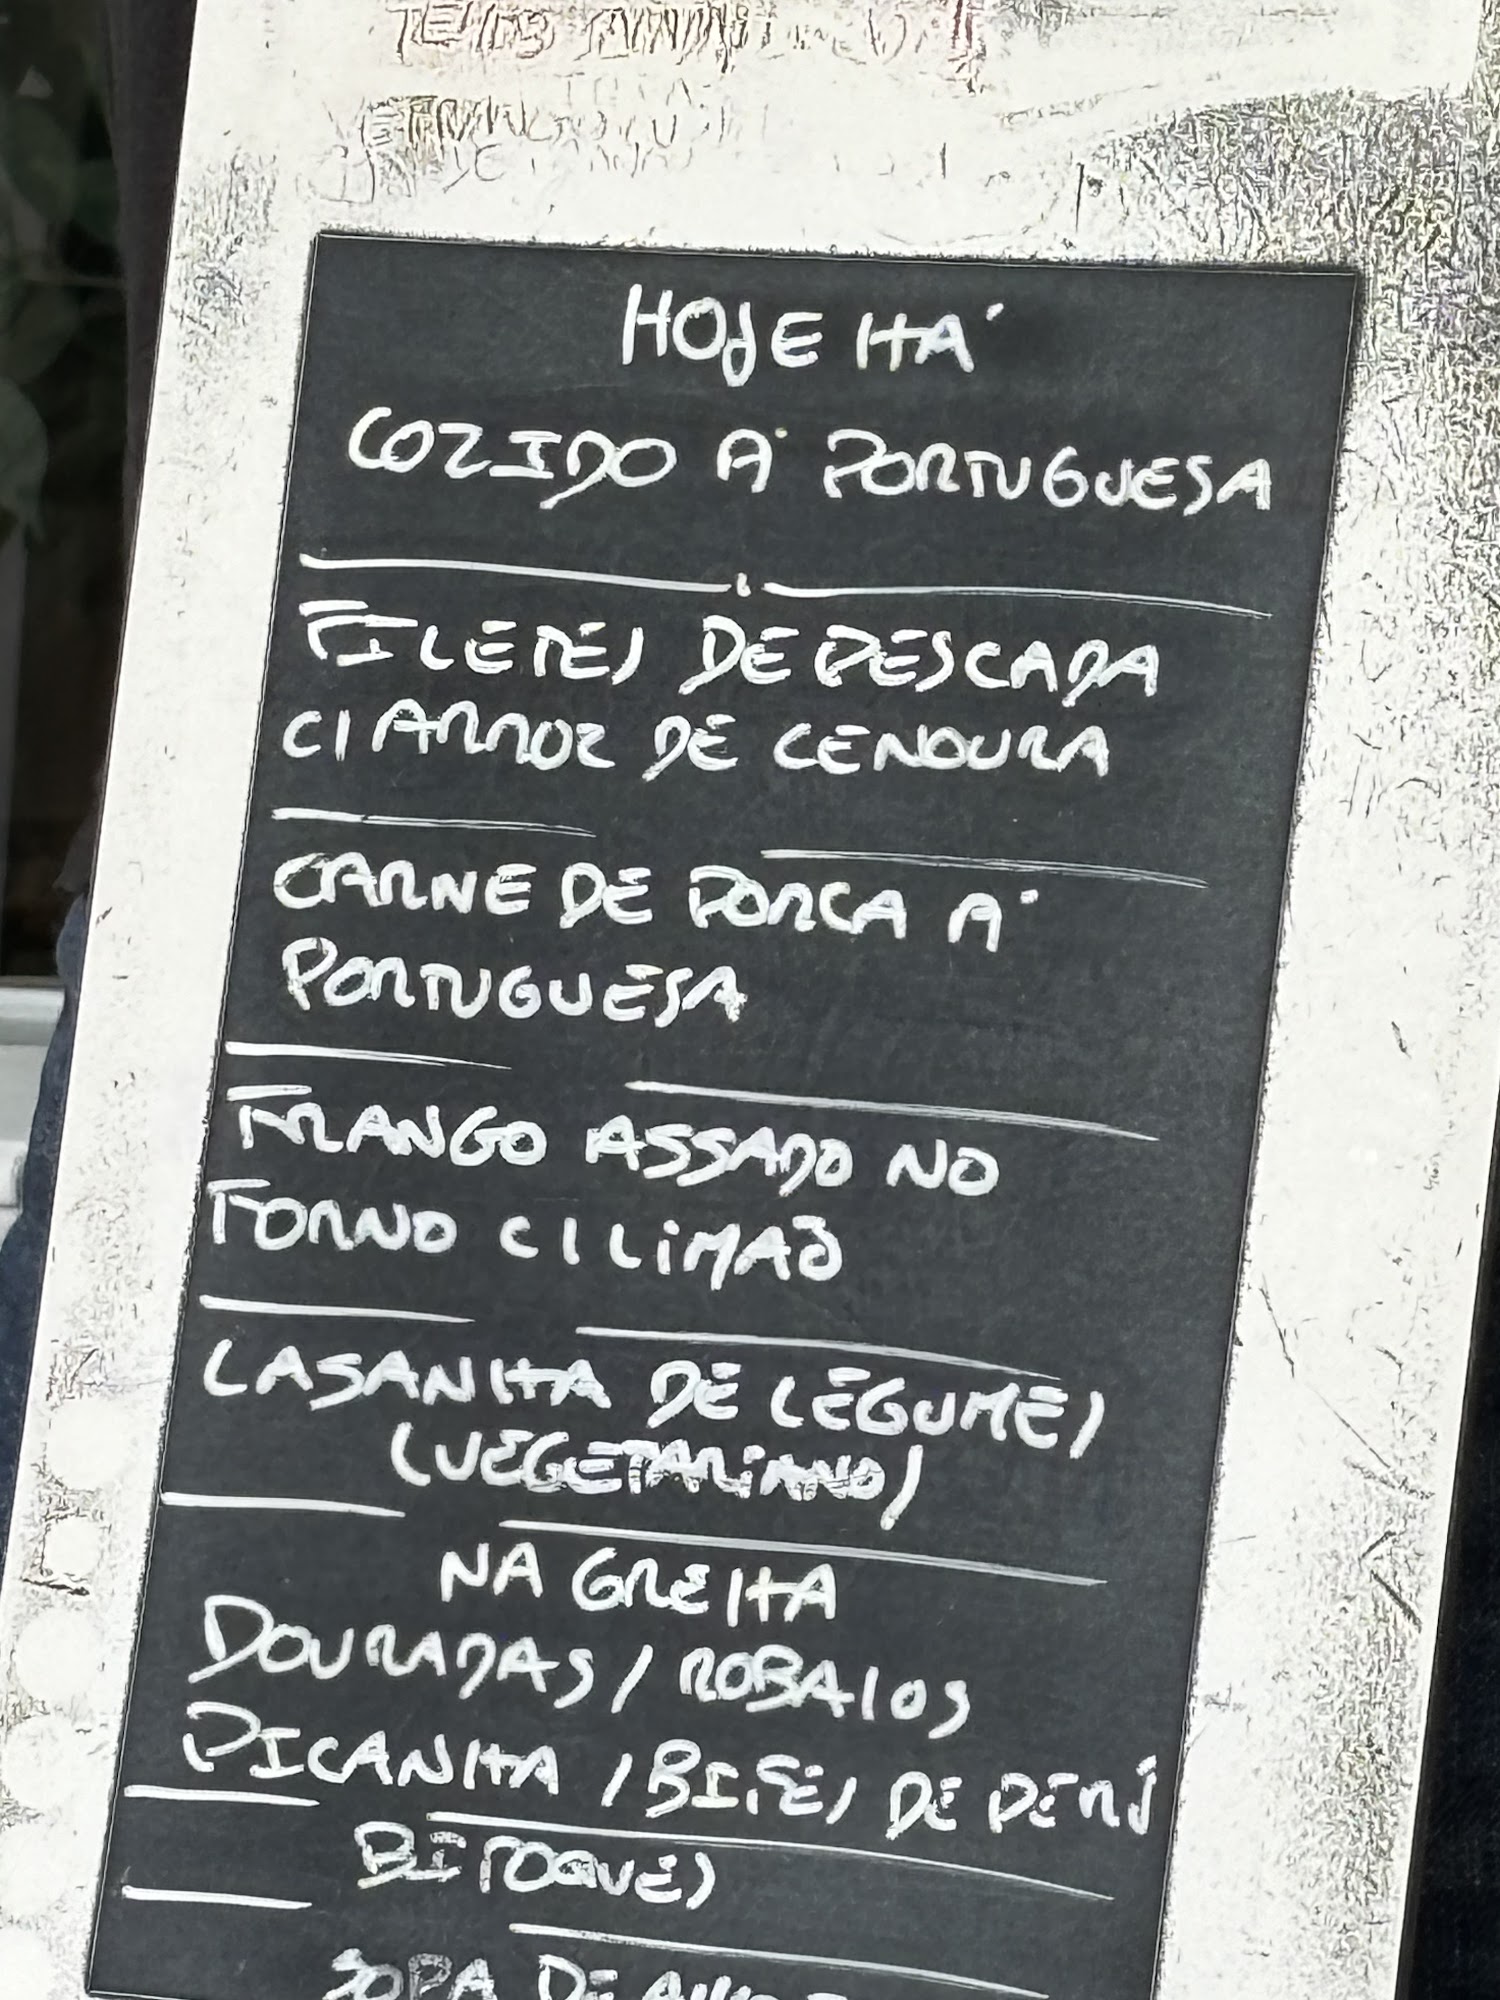 HOJE HÁ
COZIDO À PORTUGUESA
FILETES DE PESCADA
C/ ARROZ DE CENOURA
CARNE DE PORCA À
PORTUGUESA
FRANGO ASSADO NO
FORNO C/ LIMÃO
LASANHA DE LEGUMES
(VEGETARIANO)
NA GRELHA
DOURADAS / ROBALOS
PICANHA / BIFES DE PERÚ
BITOQUES
SOPA DE